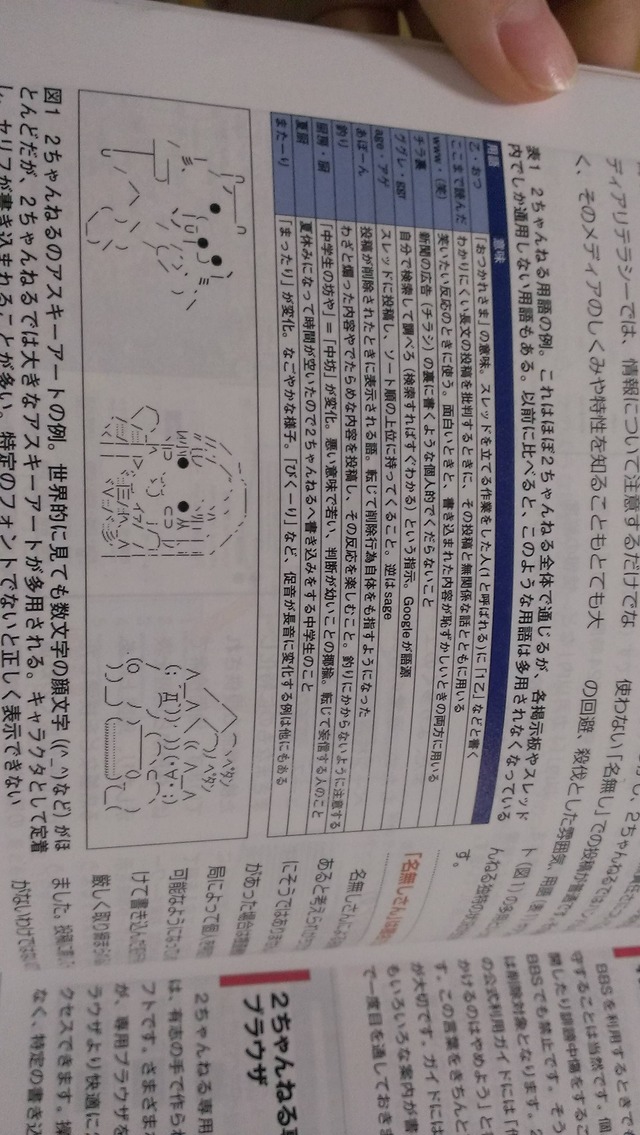 ディアリテラシーでは、情報について注意するだけでな
く、そのメディアのしくみや特性を知ることもとても大
表1 2ちゃんねる用語の例。これはほぼ2ちゃんねる全体で通じるが、各掲示板やスレッド
内でしか通用しない用語もある。以前に比べると、このような用語は多用されなくなっている
用語 意味
乙・おつ 「おつかれさま」の意味。スレッドを立てる作業をした人(1と呼ばれる)に「1乙」などと書く
ここまで読んだ わかりにくい長文の投稿を批判するときに、その投稿と無関係な話とともに用いる
www・(笑) 笑いたい反応のときに使う。面白いときと、書き込まれた内容が恥ずかしいときの両方に用いる
チラ裏 新聞の広告(チラシ)の裏に書くような個人的でくだらないこと
ググレ・ggr 自分で検索して調べろ(検索すればすぐわかる)という指示。Googleが語源
age・アゲ スレッドに投稿し、ソート順の上位に持ってくること。逆はsage
あぼーん 投稿が削除されたときに表示される語。転じて削除行為自体をも指すようになった
釣り わざと煽った内容やでたらめな内容を投稿し、その反応を楽しむこと。釣りにかからないように注意する
厨房・厨 「中学生の坊や」=「中坊」が変化。悪い意味で若い、判断が幼いことの揶揄。転じて妄信する人のこと
夏厨 夏休みになって時間が空いたので2ちゃんねるへ書き込みをする中学生のこと
またーり 「まったり」が変化。なごやかな様子。「びくーり」など、促音が長音に変化する例は他にもある
ペタン
ペタン
図1 2ちゃんねるのアスキーアートの例。世界的に見ても数文字の顔文字((^_^)など)がほ
とんどだが、2ちゃんねるでは大きなアスキーアートが多用される。キャラクタとして定着
し、セリフが書き込まれることが多い。特定のフォントでないと正しく表示できない
使わない「名無し」での投稿が普通です
の回避、殺伐とした雰囲気、用語
ト(図1)の
んねる独特の
す。
「名無しさん」は
名無しさんによ
あると考えられ
にそうではありま
があった場合は
局によって個人
可能なようになっ
けて書き込んだ
厳しく取り締まら
ました。投稿に
がないわけではない
2ちゃんねる
ブラウザ
2ちゃんねる専用
は、有志の手で作ら
フトです。さまざま
が、専用ブラウザを
ラウザより快適に
クセスできます。
なく、特定の書き込
BBSを利用するときで
守することは当然です。個
開したり誹謗中傷をするこ
BBSでも禁止です。そう
は削除対象となります。2
の公式利用ガイドには「
かけるのはやめよう」と
す。この言葉をきちんと
が大切です。ガイドには
もいろいろな案内が書
で一度目を通しておきま